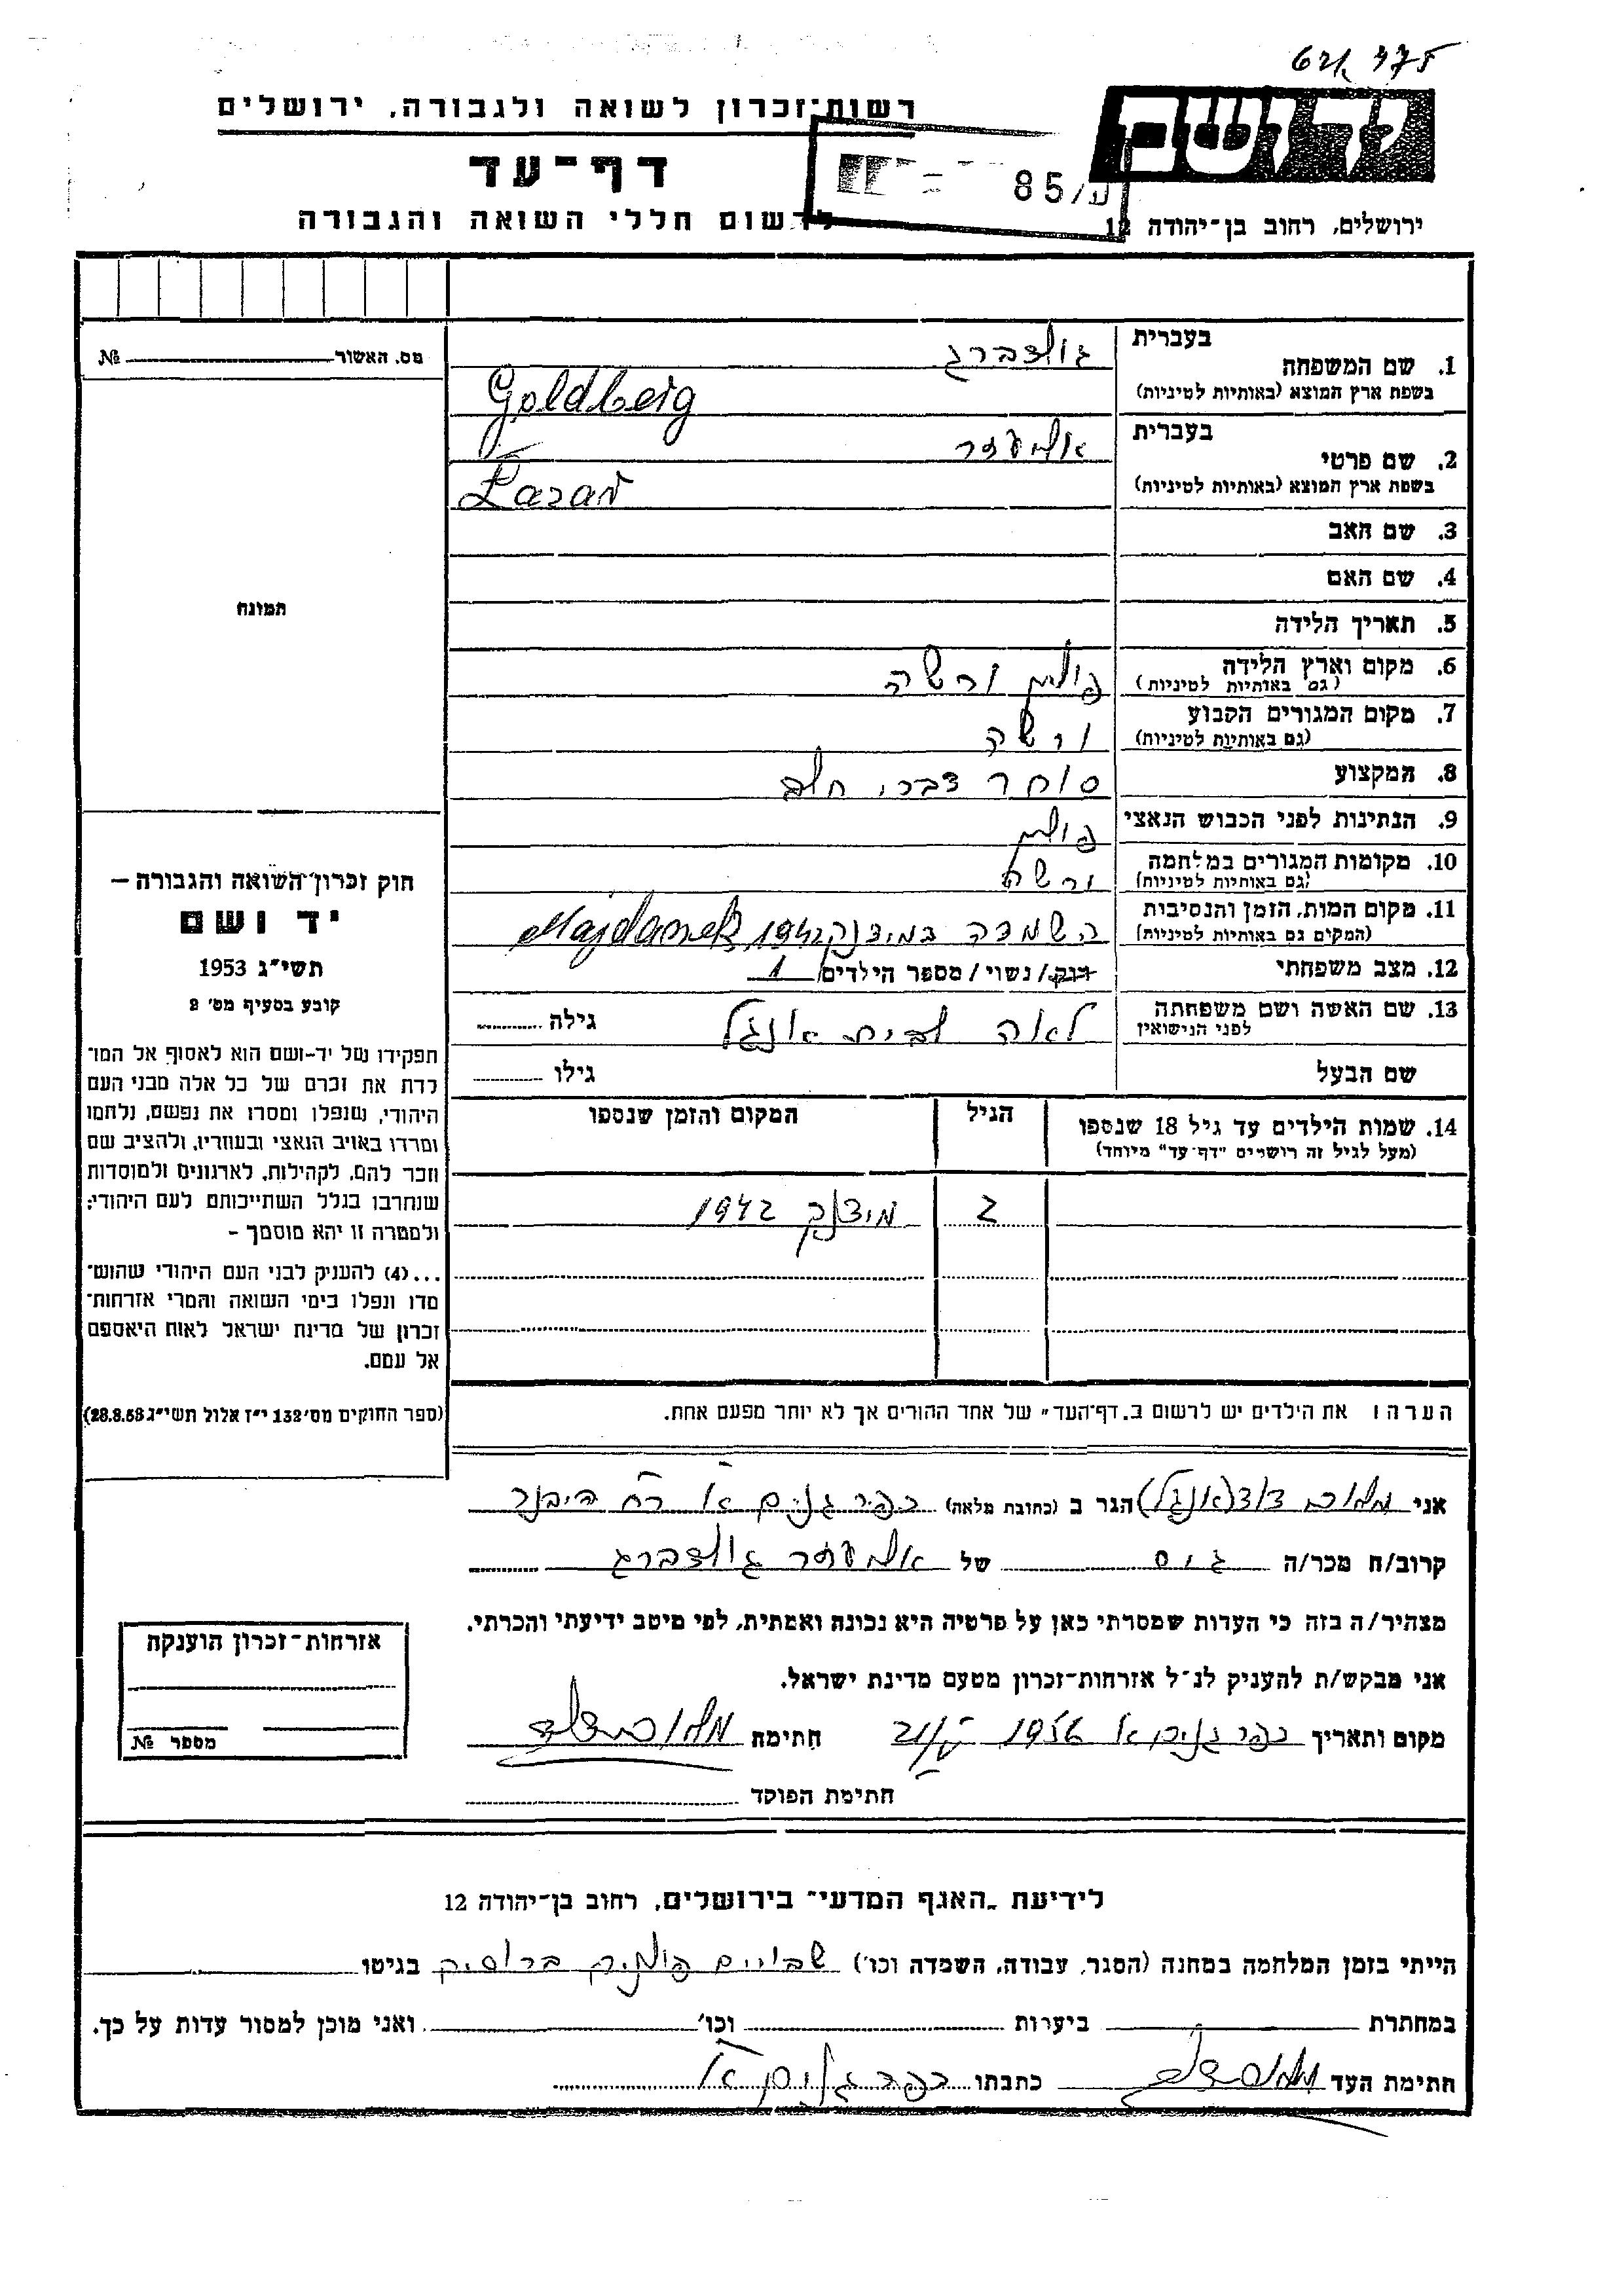 621 375
רשות-זכרון לשואה ולגבורה, ירושלים
יד ושם
דף-עד
85/ע
לרשום חללי השואה והגבורה
ירושלים, רחוב בן-יהודה 12
מס. האשור № 
בעברית גולדברג
1. שם המשפחה
בשפת ארץ המוצא (באותיות לטיניות) Goldberg
בעברית אליעזר
2. שם פרטי
בשפת ארץ המוצא (באותיות לטיניות)
3. שם האב
4. שם האם
תמונה
5. תאריך הלידה
6. מקום וארץ הלידה פולין ורשה
(גם באותיות לטיניות)
7. מקום המגורים הקבוע ורשה
(גם באותיות לטיניות)
8. המקצוע סוחר דברי חלב
9. הנתינות לפני הכבוש הנאצי פולין
10. מקומות המגורים במלחמה ורשה
(גם באותיות לטיניות)
11. מקום המות, הזמן והנסיבות השמדה במידנק 1942 Majdanek
(המקום גם באותיות לטיניות)
12. מצב משפחתי רווק/נשוי/מספר הילדים 1
13. שם האשה ושם משפחתה לאה לבית אנגל גילה
לפני הנישואין
שם הבעל גילו
14. שמות הילדים עד גיל 18 שנספו הגיל המקום והזמן שנספו
(מעל לגיל זה רושמים "דף-עד" מיוחד)
2 מידנק 1942
הערה: את הילדים יש לרשום ב"דף-העד" של אחד ההורים אך לא יותר מפעם אחת.
חוק זכרון השואה והגבורה –
יד ושם
תשי"ג 1953
קובע בסעיף מס' 2
תפקידו של יד-ושם הוא לאסוף אל המו־
לדת את זכרם של כל אלה מבני העם
היהודי, שנפלו ומסרו את נפשם, נלחמו
ומרדו באויב הנאצי ובעוזריו, ולהציב שם
וזכר להם, לקהילות, לארגונים ולמוסדות
שנחרבו בגלל השתייכותם לעם היהודי;
ולמטרה זו יהא מוסמך –
...(4) להעניק לבני העם היהודי שהוש־
מדו ונפלו בימי השואה והמרי אזרחות־
זכרון של מדינת ישראל לאות היאספם
אל עמם.
(ספר החוקים מס' 132 י"ז אלול תשי"ג 28.8.53)
אני (אנגל) הגר ב (כתובת מלאה) כפר גנים א'
קרוב/ה מכר/ה גיס של אליעזר גולדברג
מצהיר/ה בזה כי העדות שמסרתי כאן על פרטיה היא נכונה ואמתית, לפי מיטב ידיעתי והכרתי.
אני מבקש/ת להעניק לנ"ל אזרחות-זכרון מטעם מדינת ישראל.
מקום ותאריך כפר גנים א' 1956 חתימה
חתימת הפוקד
אזרחות-זכרון הוענקה
מספר №
לידיעת "האגף המדעי" בירושלים, רחוב בן-יהודה 12
הייתי בזמן המלחמה במחנה (הסגר, עבודה, השמדה וכו') שבויים ברוסיה בגיטו
במחתרת ביערות וכו' ואני מוכן למסור עדות על כך.
חתימת העד כתבתו כפר גנים א'